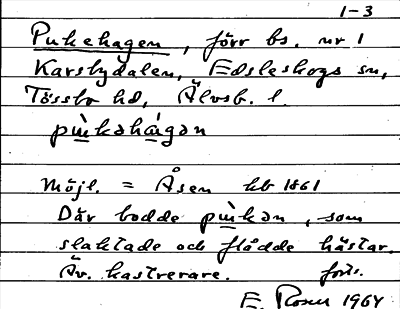 1-3
Pukehagen, förr bs. nr 1
Karsbydalen, Edsleskogs sn,
Tössbo hd, Älvsb. l.
pu̇̀kəhàgən
Möjl. = Åsen hb 1861
Där bodde pu̇̀kən, som
slaktade och flådde hästar.
Äv. kastrerare. forts.
E. Rosell 1964